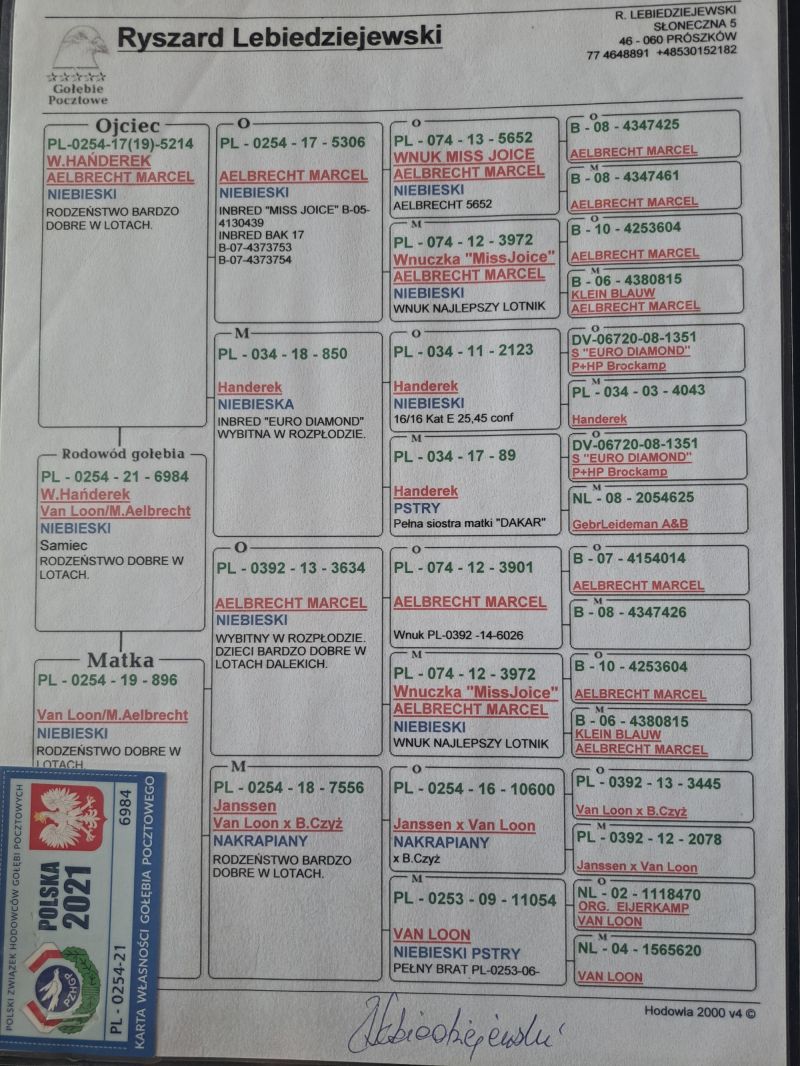 Ryszard Lebiedziejewski
R. LEBIEDZIEJEWSKI
SŁONECZNA 5
46 - 060 PRÓSZKÓW
77 4648891 +48530152182
Gołębie
Pocztowe
Ojciec
PL-0254-17(19)-5214
W.HAŃDEREK
AELBRECHT MARCEL
NIEBIESKI
RODZEŃSTWO BARDZO
DOBRE W LOTACH.
Rodowód gołębia
PL - 0254 - 21 - 6984
W.Hańderek
Van Loon/M.Aelbrecht
NIEBIESKI
Samiec
RODZEŃSTWO DOBRE W
LOTACH.
Matka
PL - 0254 - 19 - 896
Van Loon/M.Aelbrecht
NIEBIESKI
RODZEŃSTWO DOBRE W
LOTACH.
O
PL - 0254 - 17 - 5306
AELBRECHT MARCEL
NIEBIESKI
INBRED "MISS JOICE" B-05-
4130439
INBRED BAK 17
B-07-4373753
B-07-4373754
M
PL - 034 - 18 - 850
Handerek
NIEBIESKA
INBRED "EURO DIAMOND"
WYBITNA W ROZPŁODZIE.
O
PL - 0392 - 13 - 3634
AELBRECHT MARCEL
NIEBIESKI
WYBITNY W ROZPŁODZIE.
DZIECI BARDZO DOBRE W
LOTACH DALEKICH.
M
PL - 0254 - 18 - 7556
Janssen
Van Loon x B.Czyż
NAKRAPIANY
RODZEŃSTWO BARDZO
DOBRE W LOTACH.
O
PL - 074 - 13 - 5652
WNUK MISS JOICE
AELBRECHT MARCEL
NIEBIESKI
AELBRECHT 5652
M
PL - 074 - 12 - 3972
Wnuczka "MissJoice"
AELBRECHT MARCEL
NIEBIESKI
WNUK NAJLEPSZY LOTNIK
O
PL - 034 - 11 - 2123
Handerek
NIEBIESKI
16/16 Kat E 25,45 conf
M
PL - 034 - 17 - 89
Handerek
PSTRY
Pełna siostra matki "DAKAR"
O
PL - 074 - 12 - 3901
AELBRECHT MARCEL
Wnuk PL-0392 -14-6026
M
PL - 074 - 12 - 3972
Wnuczka "MissJoice"
AELBRECHT MARCEL
NIEBIESKI
WNUK NAJLEPSZY LOTNIK
O
PL - 0254 - 16 - 10600
Janssen x Van Loon
NAKRAPIANY
x B.Czyż
M
PL - 0253 - 09 - 11054
VAN LOON
NIEBIESKI PSTRY
PEŁNY BRAT PL-0253-06-
O
B - 08 - 4347425
AELBRECHT MARCEL
M
B - 08 - 4347461
AELBRECHT MARCEL
O
B - 10 - 4253604
AELBRECHT MARCEL
M
B - 06 - 4380815
KLEIN BLAUW
AELBRECHT MARCEL
O
DV-06720-08-1351
S "EURO DIAMOND"
P+HP Brockamp
M
PL - 034 - 03 - 4043
Handerek
O
DV-06720-08-1351
S "EURO DIAMOND"
P+HP Brockamp
M
NL - 08 - 2054625
GebrLeideman A&B
O
B - 07 - 4154014
AELBRECHT MARCEL
M
B - 08 - 4347426
O
B - 10 - 4253604
AELBRECHT MARCEL
M
B - 06 - 4380815
KLEIN BLAUW
AELBRECHT MARCEL
O
PL - 0392 - 13 - 3445
Van Loon x B.Czyż
M
PL - 0392 - 12 - 2078
Janssen x Van Loon
O
NL - 02 - 1118470
ORG. EIJERKAMP
VAN LOON
M
NL - 04 - 1565620
VAN LOON
Hodowla 2000 v4 ©
POLSKI ZWIĄZEK HODOWCÓW GOŁĘBI POCZTOWYCH
POLSKA
2021
PZHGP
PL - 0254-21 6984
KARTA WŁASNOŚCI GOŁĘBIA POCZTOWEGO